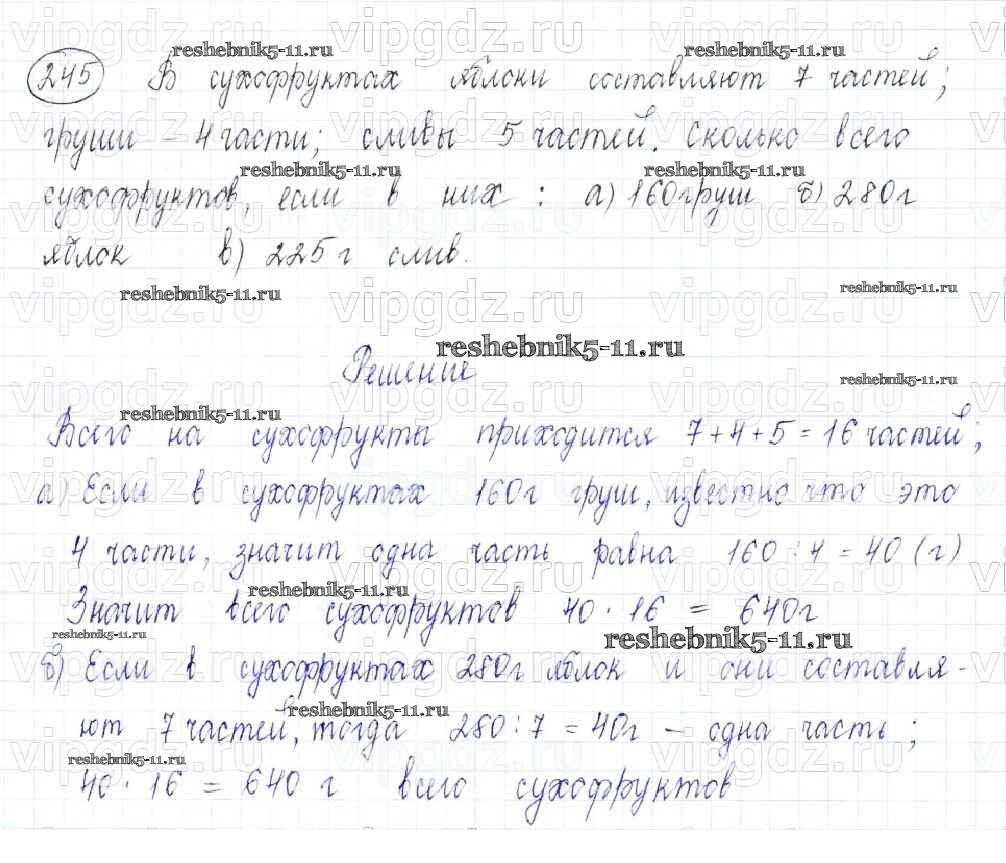 245 В сухофруктах яблоки составляют 7 частей;
груши - 4 части; сливы 5 частей. Сколько всего
сухофруктов, если в них : а) 160 груш б) 280 г
яблок в) 225 г слив.
Решение
Всего на сухофрукты приходится 7+4+5=16 частей;
а) Если в сухофруктах 160 г груш, известно что это
4 части, значит одна часть равна 160 : 4 = 40 (г)
Значит всего сухофруктов 40 · 16 = 640 г
б) Если в сухофруктах 280 г яблок и они составля-
ют 7 частей, тогда 280 : 7 = 40 г - одна часть;
40 · 16 = 640 г всего сухофруктов
reshebnik5-11.ru
vipgdz.ru